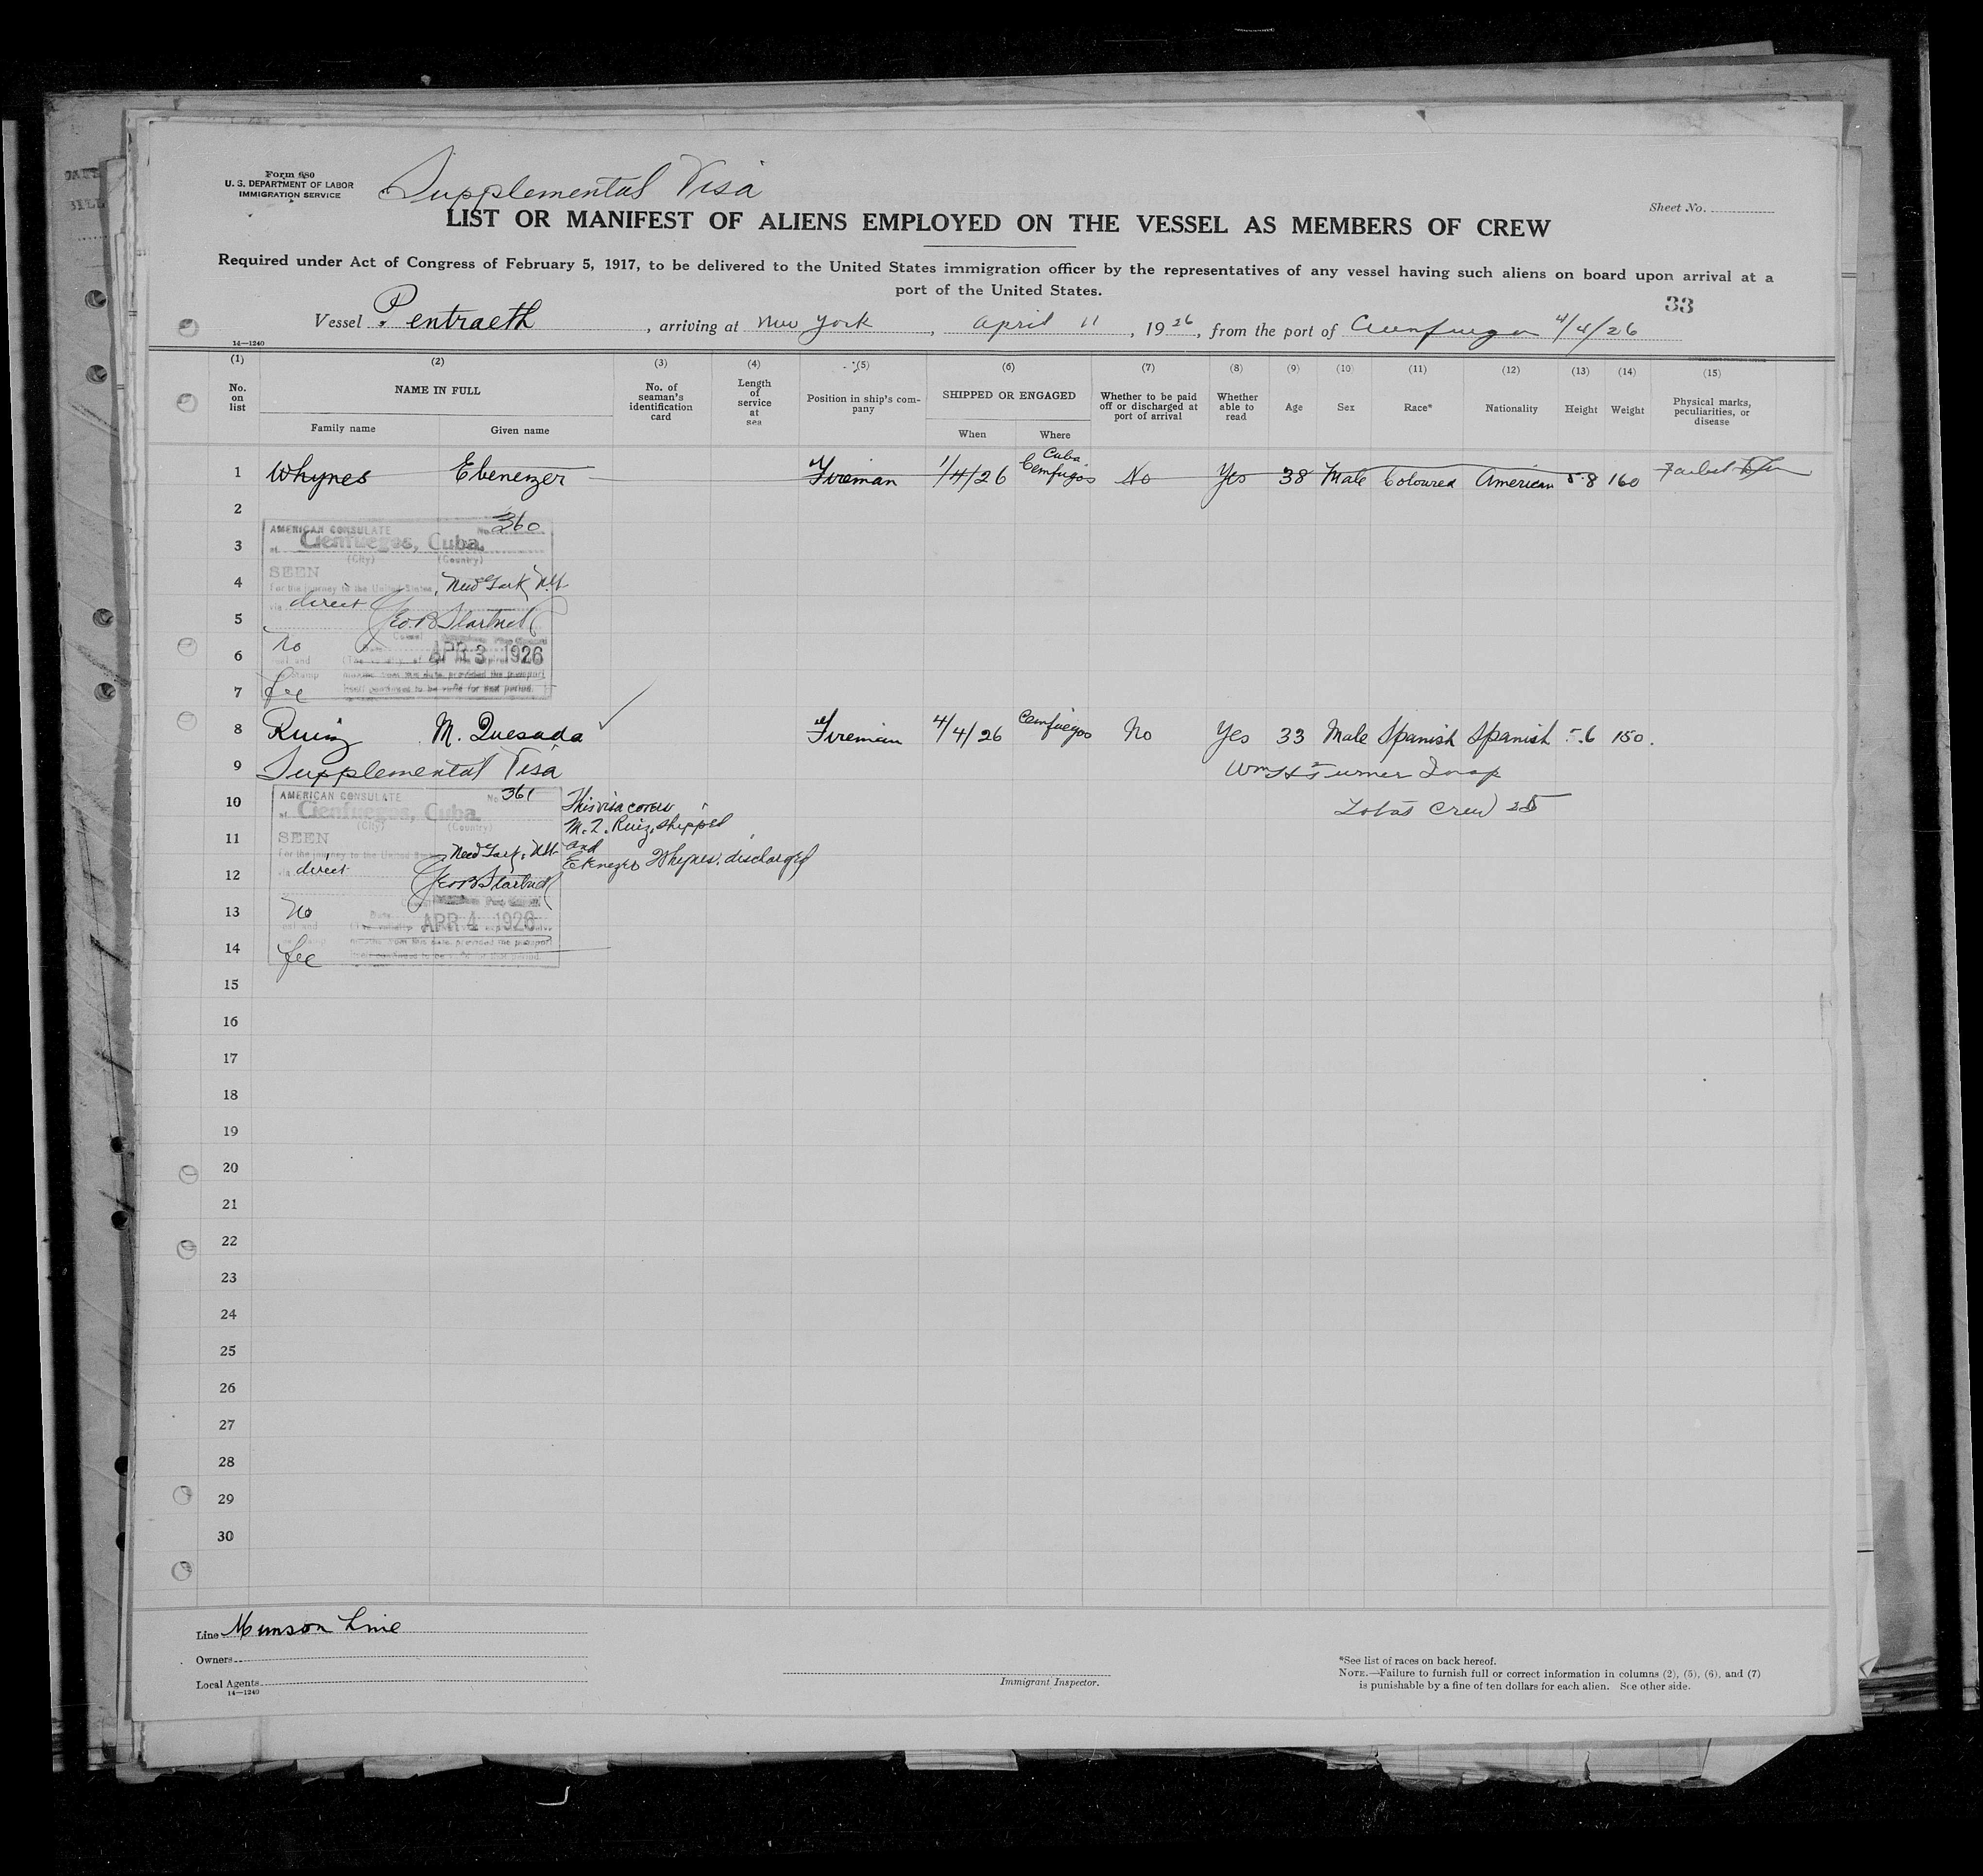 Form 680
U. S. DEPARTMENT OF LABOR
IMMIGRATION SERVICE
Supplemental Visa
Sheet No.
LIST OR MANIFEST OF ALIENS EMPLOYED ON THE VESSEL AS MEMBERS OF CREW
Required under Act of Congress of February 5, 1917, to be delivered to the United States immigration officer by the representatives of any vessel having such aliens on board upon arrival at a
port of the United States.
33
Vessel Pentraeth, arriving at New York, April 11, 1926, from the port of Cienfuegos 4/4/26
14—1240
(1) (2) (3) (4) (5) (6) (7) (8) (9) (10) (11) (12) (13) (14) (15)
No. on list NAME IN FULL No. of seaman's identification card Length of service at sea Position in ship's company SHIPPED OR ENGAGED Whether to be paid off or discharged at port of arrival Whether able to read Age Sex Race* Nationality Height Weight Physical marks, peculiarities, or disease
Family name Given name When Where
1 Whynes Ebenezer Fireman 1/4/26 Cuba Cemfugos No Yes 38 Male Coloured American 5.8 160
2
3
4
5
6
7
AMERICAN CONSULATE No. 360
at Cienfuegos, Cuba.
(City) (Country)
SEEN
For the journey to the United States, New York, N.Y.
via direct
No
APR 3 1926
fee
8 Ruiz M. Quesada ✓ Fireman 4/4/26 Cemfuegos No Yes 33 Male Spanish Spanish 5.6 150.
9 Supplemental Visa Wm H Turner Insp
10 Total Crew 25
11
12
13
14
AMERICAN CONSULATE No. 361
at Cienfuegos, Cuba.
(City) (Country)
SEEN
For the journey to the United States New York, N.Y.
via direct
No
APR 4 1926
fee
This visa covers
M. Q. Ruiz, shipped
and
Ebenezer Whynes, discharged
15
16
17
18
19
20
21
22
23
24
25
26
27
28
29
30
Line Munson Line
Owners
Local Agents
14—1240
Immigrant Inspector.
*See list of races on back hereof.
NOTE.—Failure to furnish full or correct information in columns (2), (5), (6), and (7)
is punishable by a fine of ten dollars for each alien. See other side.